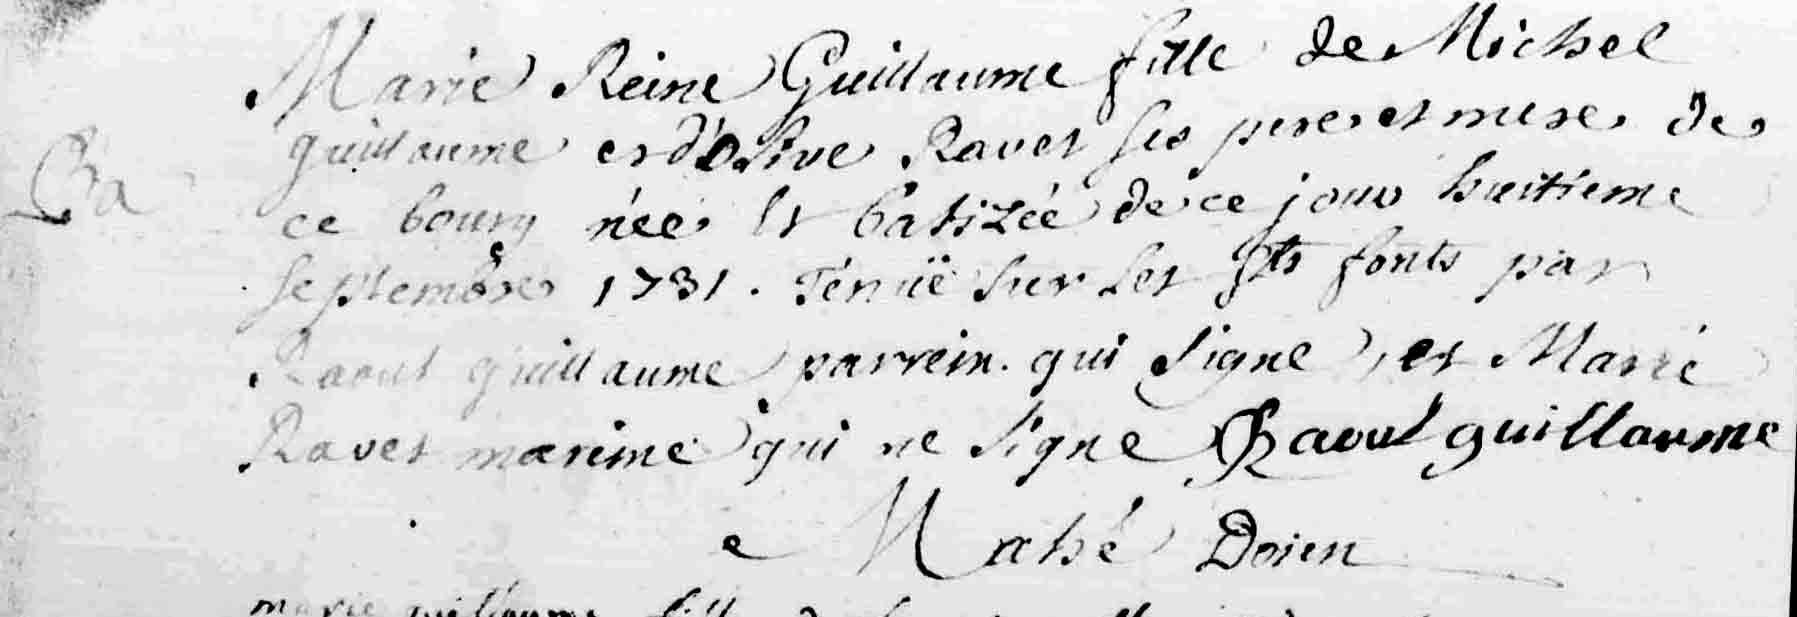 Marie Reine Guillaume fille de Michel
guillaume et d'olive Ravet ses pere et mere de
Ba
ce bourg née et batizée de ce jour huitieme
septembre 1731. Ténuë sur les sts fonts par
Raoul guillaume parrein. qui signe, et Marie
Ravet mareine qui ne signe Raoul guillaume
Mahé Doien
marie guillaume fille